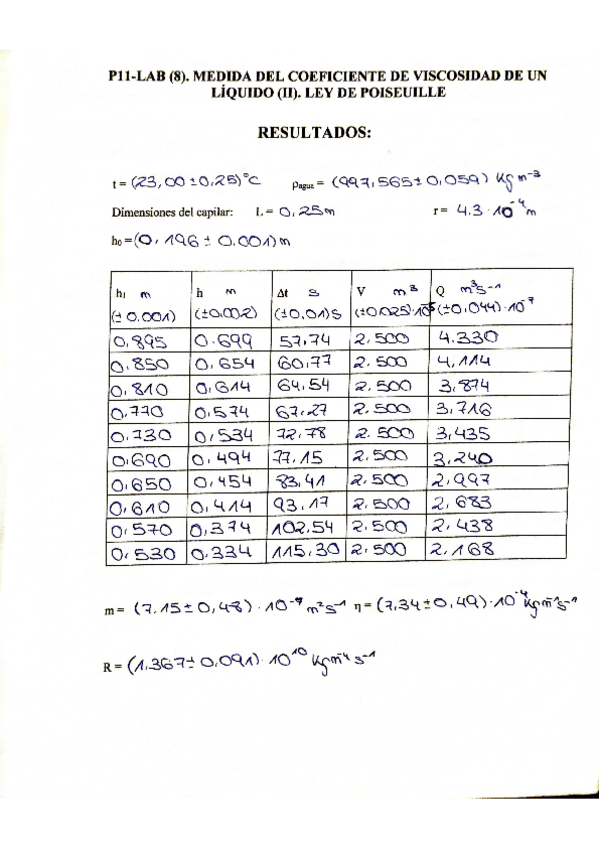 P11-LAB (8). MEDIDA DEL COEFICIENTE DE VISCOSIDAD DE UN
LÍQUIDO (II). LEY DE POISEUILLE
RESULTADOS:
t = (23,00 ± 0,25)ºC ρagua = (997,565 ± 0,059) Kg m⁻³
Dimensiones del capilar: L = 0,25m r = 4.3·10⁻⁴m
h₀ = (0,196 ± 0.001)m
h₁ m h m Δt s V m³ Q m³s⁻¹
(± 0.001) (±0.002) (±0.01)s (±0.025)·10⁻⁵ (±0,044)·10⁻⁷
0,895 0.699 57,74 2.500 4.330
0.850 0,654 60,77 2.500 4,114
0.810 0,614 64,54 2.500 3,874
0.770 0,574 67,27 2.500 3,716
0.730 0,534 72,78 2.500 3,435
0.690 0.494 77,15 2.500 3,240
0.650 0,454 83,41 2.500 2,997
0,610 0,414 93,17 2,500 2,683
0,570 0,374 102,54 2.500 2.438
0,530 0.334 115,30 2.500 2.168
m = (7.15 ± 0,48)·10⁻⁷ m²s⁻¹ η = (7,34 ± 0,49)·10⁻⁴ Kg m⁻¹s⁻¹
R = (1.367 ± 0.091)·10¹⁰ Kg m⁻⁴ s⁻¹